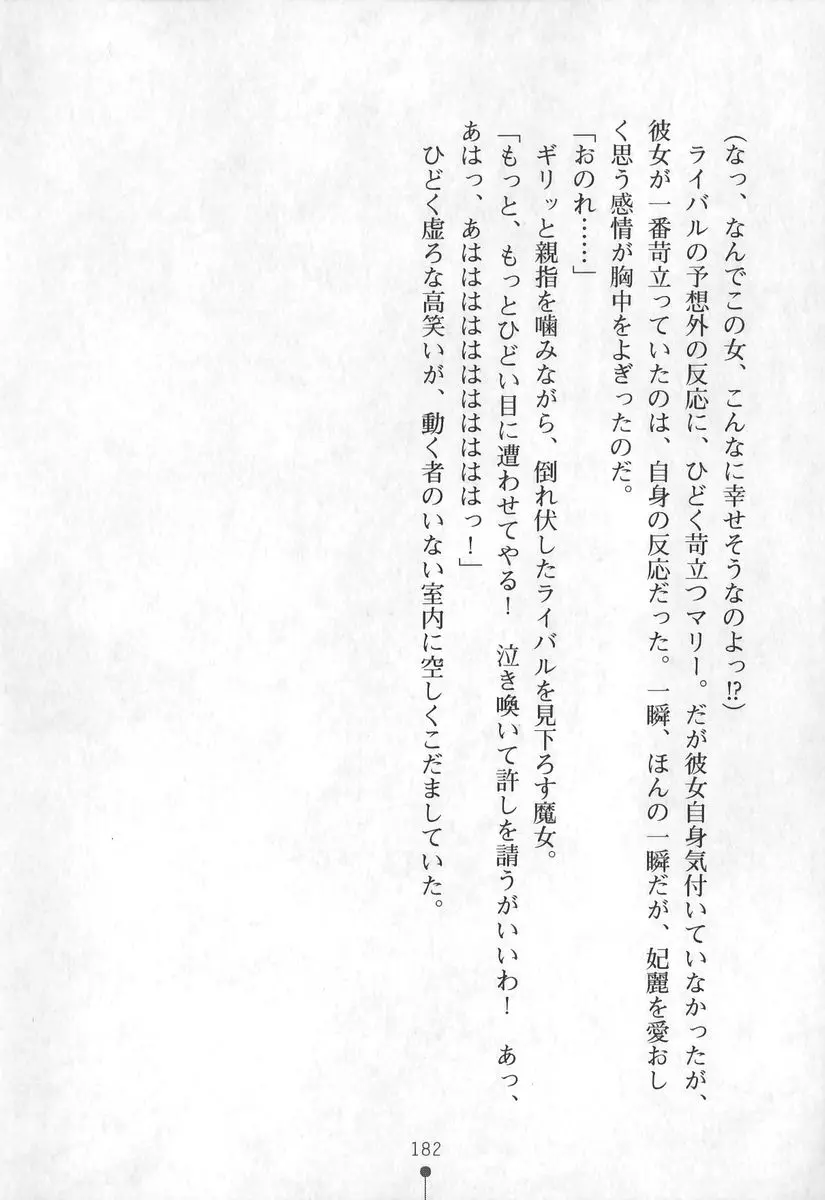 (なっ、なんでこの女、こんなに幸せそうなのよっ!?)
　ライバルの予想外の反応に、ひどく苛立つマリー。だが彼女自身気付いていなかったが、
彼女が一番苛立っていたのは、自身の反応だった。一瞬、ほんの一瞬だが、妃麗を愛おし
く思う感情が胸中をよぎったのだ。
「おのれ……」
　ギリッと親指を噛みながら、倒れ伏したライバルを見下ろす魔女。
「もっと、もっとひどい目に遭わせてやる！　泣き喚いて許しを請うがいいわ！　あっ、
あはっ、あははははははははははっ！」
　ひどく虚ろな高笑いが、動く者のいない室内に空しくこだましていた。
182